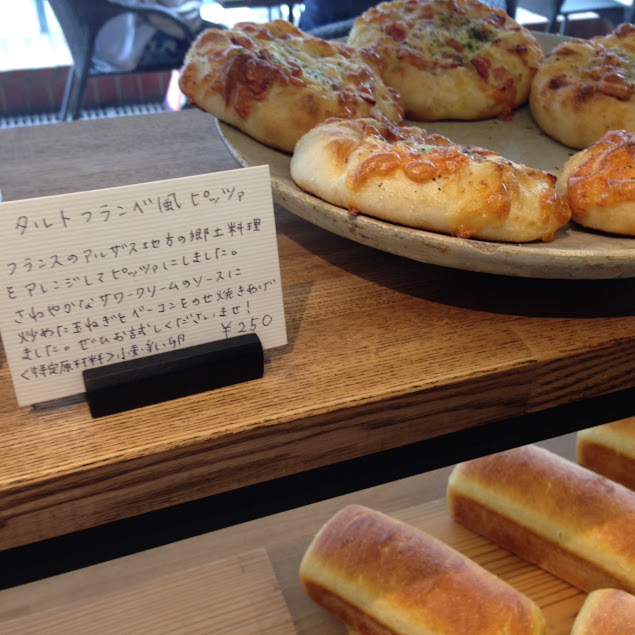 タルトフランベ風ピッツァ
フランスのアルザス地方の郷土料理
をアレンジしてピッツァにしました。
さわやかなサワークリームのソースに
炒めた玉ねぎとベーコンをのせ焼きあげ
ました。ぜひお試しくださいませ! ¥250
<特定原材料>小麦・乳・卵